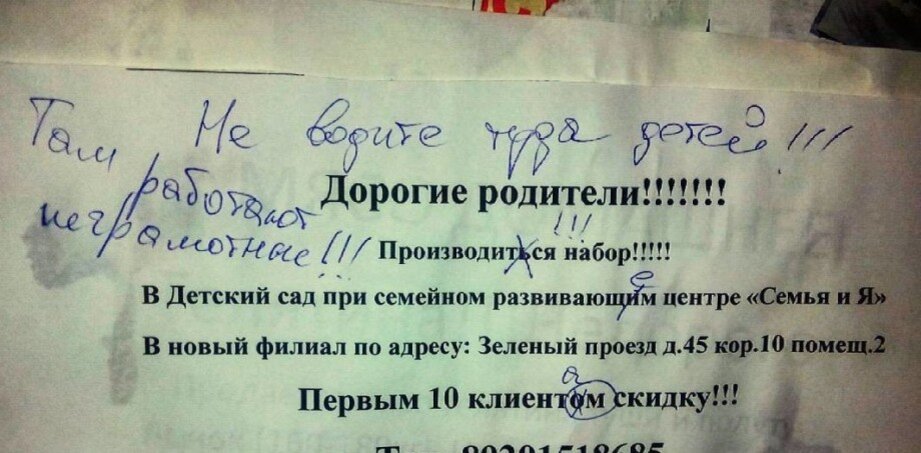 Не водите туда детей!!!
Там
работают
неграмотные!!!
Дорогие родители!!!!!!!
!!!
Производиться набор!!!!!
е
В Детский сад при семейном развивающим центре «Семья и Я»
В новый филиал по адресу: Зеленый проезд д.45 кор.10 помещ.2
а
Первым 10 клиентом скидку!!!
89201518685